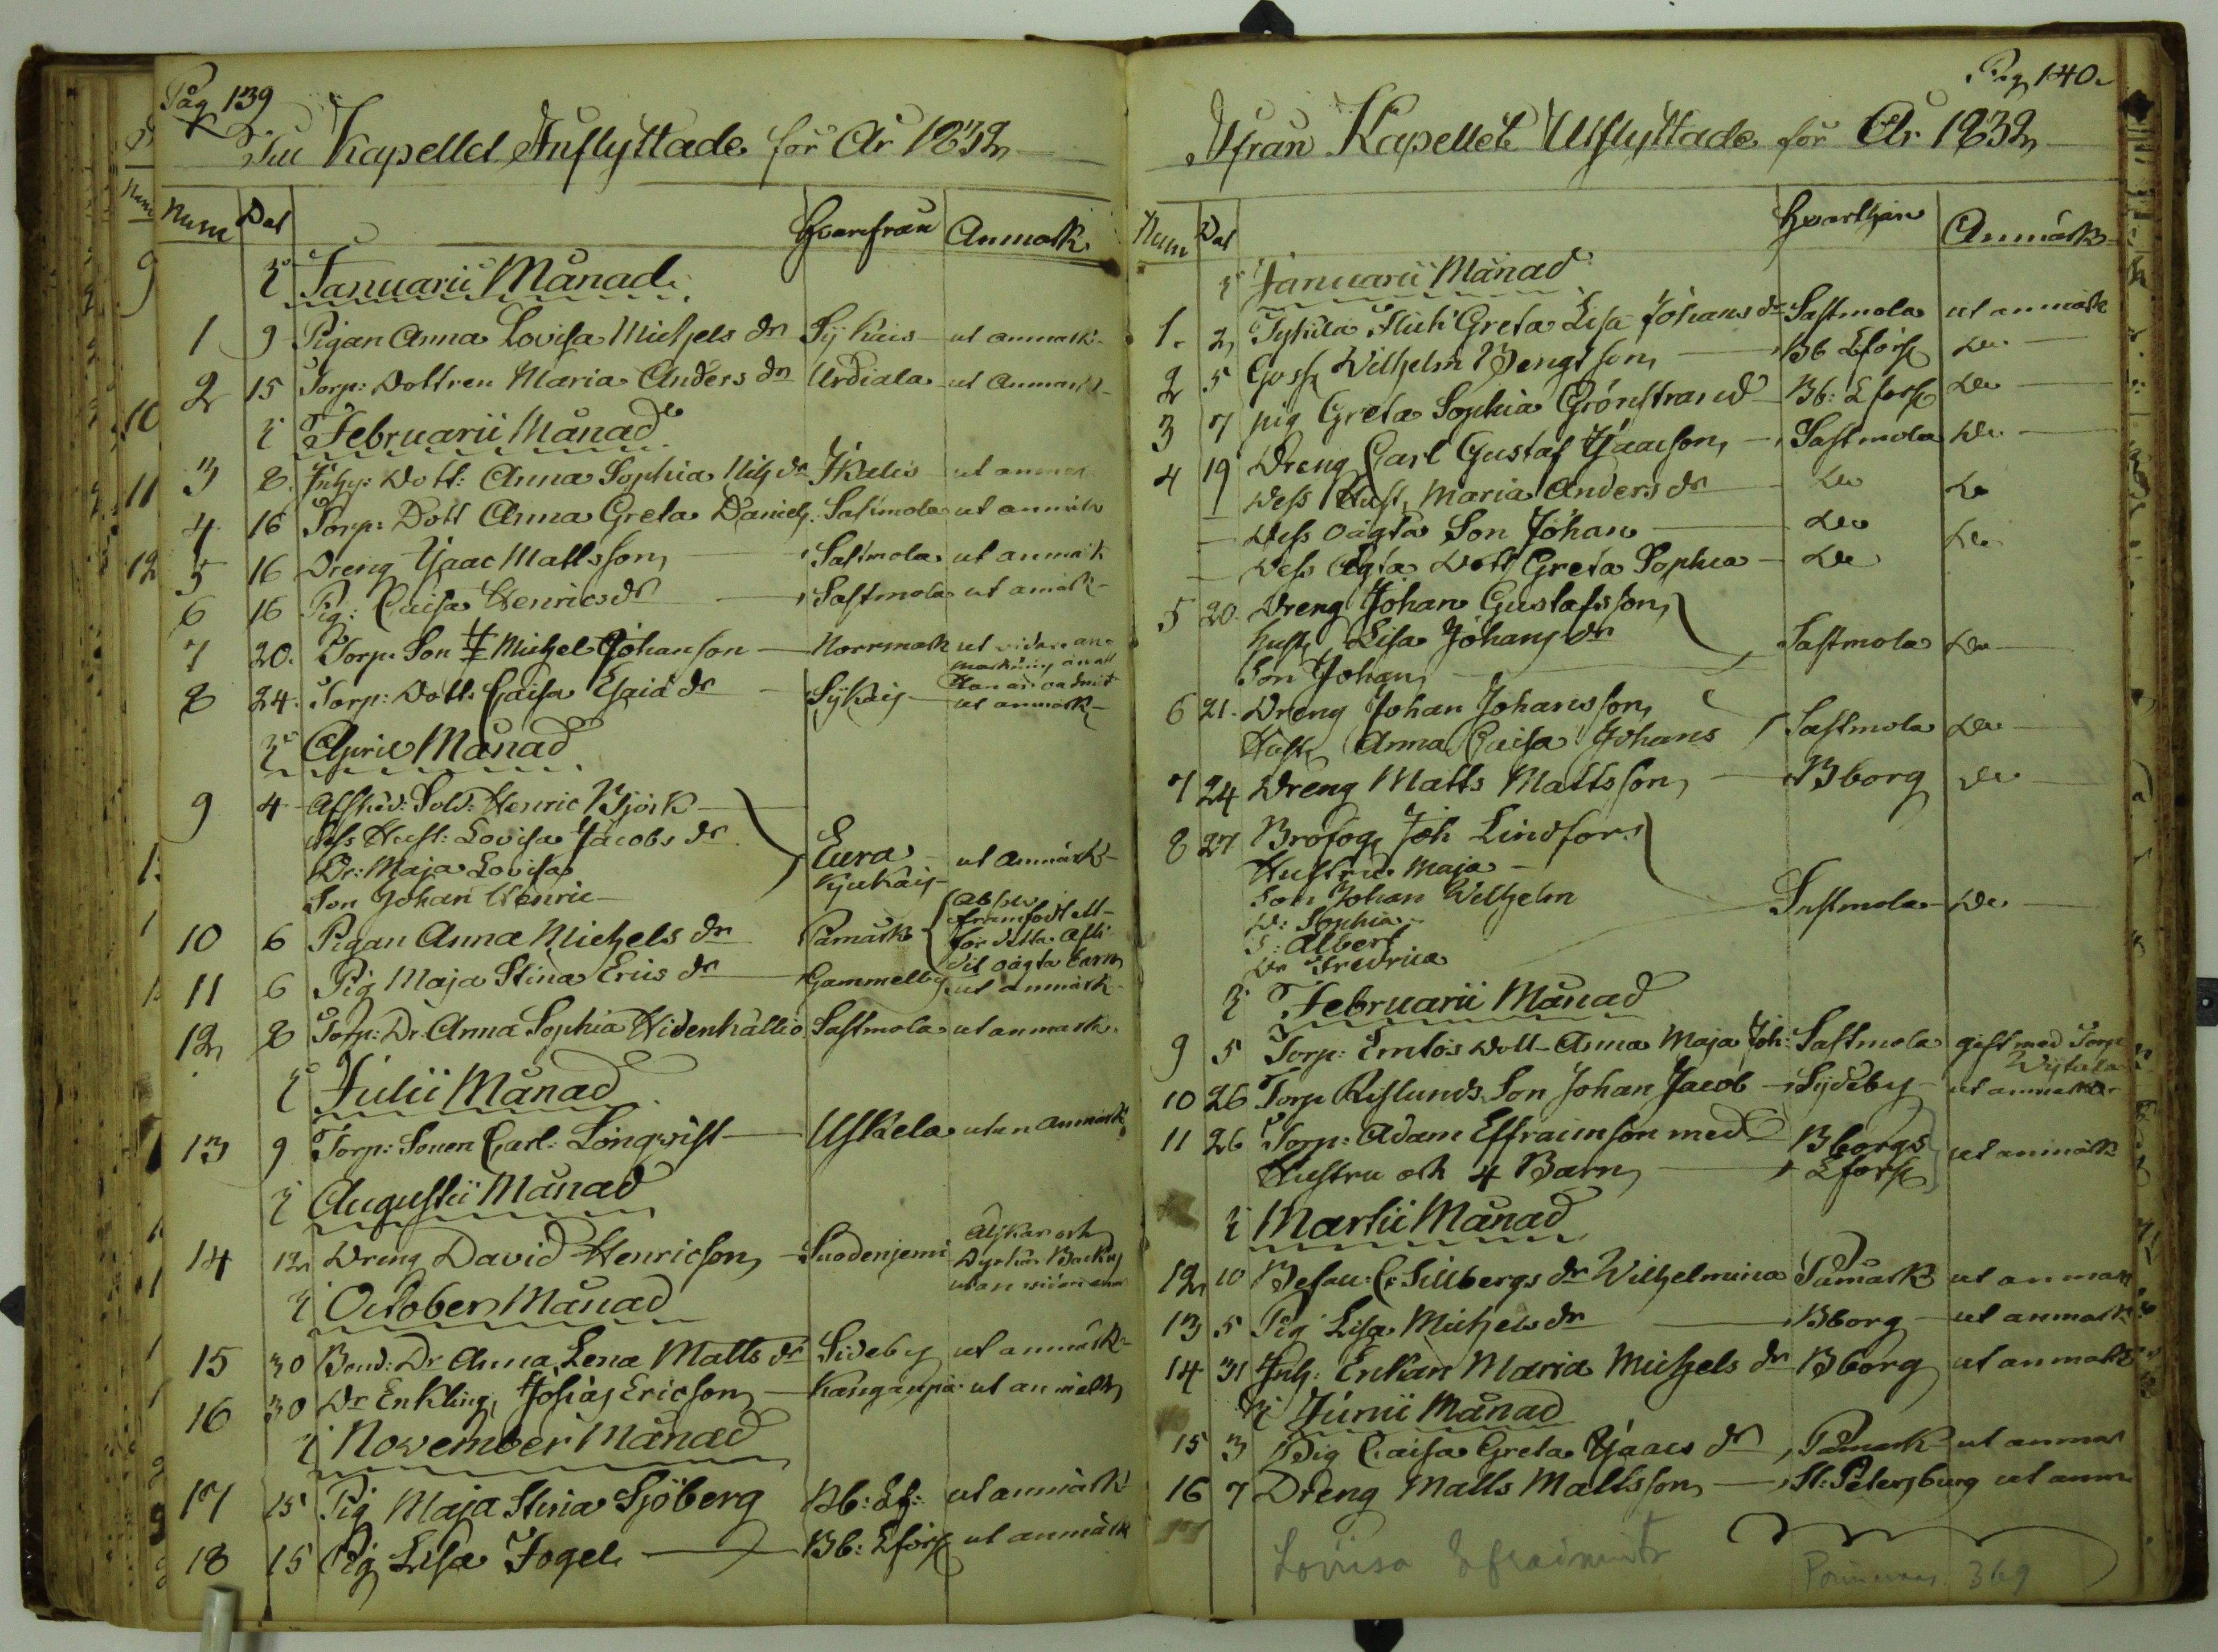 Pag 139
Till Kapellet Inflyttade för År 1832
Num Dat Hvarifrån Anmärk
i Januarii Månad
1 9 Pigan Anna Lovisa Michels dr Sykäis ut anmärk
2 15 Torp: Dottren Maria Anders dr Urdiala ut anmärk
i Februarii Månad
3 8. Inhy: Dott: Anna Sophia Ikalis ut anmär
4 16 Torp: Dott Anna Greta Daniels Sastmola ut anmärk
5 16 Dreng Isaac Mattsson Sastmola ut anmärk
6 16 Pig: Caisa Henrics dr Sastmola ut anmärk
7 20. Torp. Son Michel Johanson Norrmark ut vidare an-
märkning än att
Han är oadmit
8 24. Torp: Dott. Caisa Esaia dr Sykäis ut anmärk
i April Månad
9 4 Afsked: Sold: Henric Björk
Dess Hust: Lovisa Jacobs dr
Dr: Maja Lovisa Eura ut anmärk
Son Johan Henric Kjukais
10 6 Pigan Anna Michels dr Påmark
för detta
oägta barn
11 6 Pig Maja Stina Erics dr Gammelby ut anmärk
12 8 Torp: Dr. Anna Sophia Hidenkallio Sastmola ut anmärk
i Julii Månad
13 9 Torp: Sonen Carl Löngqvist Uskela utan anmärk
i Augustii Månad
14 12 Dreng David Henricson Suodenjemi Älskar och
Dyrkar Backus
utan vidare anm
i October Månad
15 30 Bond: Dr Anna Lena Matts dr Sideby ut anmärk
16 30 Do Enkling Josias Ericson Kangänpä ut anmärk
i November Månad
17 15 Pig Maja Stina Sjöberg Bb: Lf: ut anmärk
18 15 Pig Lisa Fogel Bb: Lförs ut anmärk
Pag 140
Ifrån Kapellet Utflyttade för År 1832
Num Dat Hvarthän Anmärk
i Januarii Månad
1. 2 Flick Greta Lisa Johans dr Sastmola ut anmärk
2 5 Goss Wilhelm Bengtson Bb Lförs Do
3 7 pig Greta Sophia Grönstrand Bb: Lförs Do
4 19 Dreng Carl Gustaf Isaacson Sastmola Do
Dess Hust. Maria Anders dr Do Do
Dess oägta Son Johan Do Do
Dess ägta Dott Greta Sophia Do
5 20. Dreng Johan Gustafsson
Hust Lisa Johans dr Sastmola Do
Son Johan
6 21. Dreng Johan Johansson
Hust Anna Caisa Johans Sastmola Do
7 24 Dreng Matts Mattsson Bborg Do
8 27 Brofog Joh Lindfors
Hustru Maja
Son Johan Wilhelm Sastmola Do
D: Sophia
S: Albert
Dr Fredrica
i Februarii Månad
9 5 Torp: Dott Anna Maja Joh: Sastmola gift med Torp
10 26 Torp Son Johan Jacob Sydeby ut anmärk
11 26 Torp: Adam Effraimson med Bborgs ut anmärk
Hustru och 4 Barn Lförs
i Martii Månad
12 10 Sillbergs dr Wilhelmina Påmark ut anmärk
13 5 Pig Lisa Michels dr Bborg ut anmärk
14 31 Inh: Enkan Maria Michels dr Bborg ut anmärk
i Junii Månad
15 3 Pig Caisa Greta Isaacs dr Påmark ut anmär
16 7 Dreng Matts Mattsson St: Petersburg ut anm
Lovisa Efraimintr 369